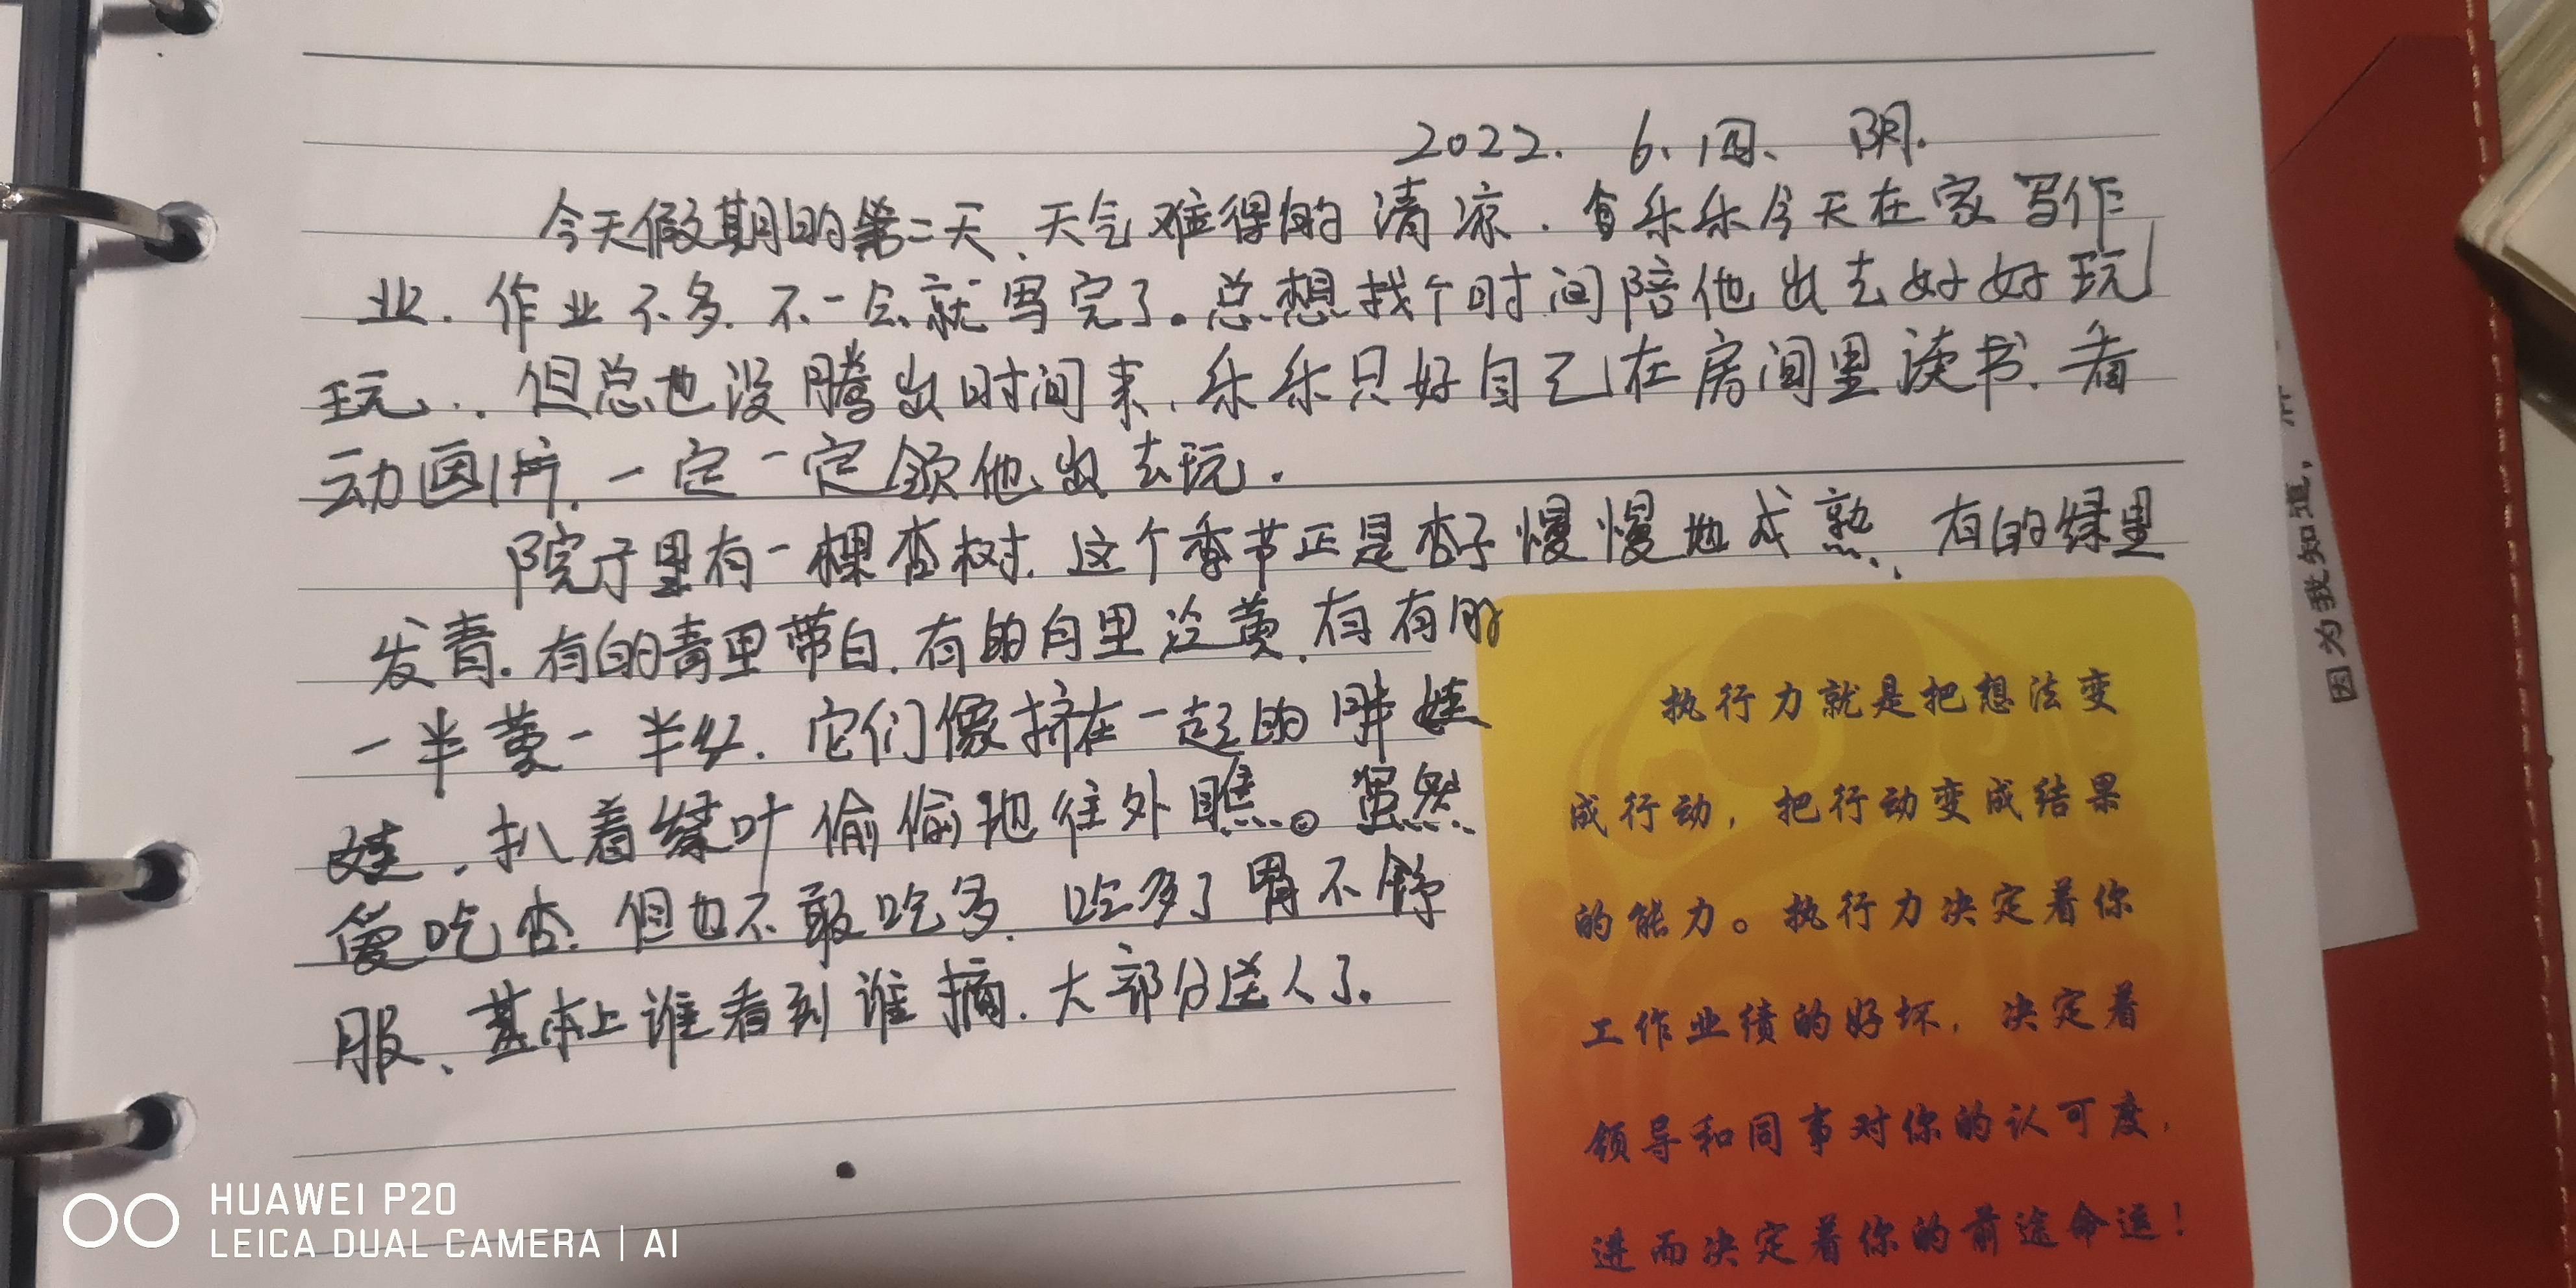 2022. 6. 四、 阴.
今天假期的第二天、天气难得的清凉. 乐乐今天在家写作
业. 作业不多. 不一会就写完了。总想找个时间陪他出去好好玩
玩.. 但总也没腾出时间来. 乐乐只好自己在房间里读书. 看
动画片. 一定一定领他出去玩.
院子里有一棵杏树. 这个季节正是杏子慢慢地成熟、有的绿里
发青. 有的青里带白. 有的白里泛黄. 有有的
一半黄一半红. 它们像挤在一起的胖娃
娃. 扒着绿叶偷偷地往外瞧。虽然
爱吃杏. 但也不敢吃多. 吃多了胃不舒
服、基本上谁看到谁摘. 大部分送人了。
执行力就是把想法变
成行动，把行动变成结果
的能力。执行力决定着你
工作业绩的好坏，决定着
领导和同事对你的认可度，
进而决定着你的前途命运！
因为我知道，
HUAWEI P20
LEICA DUAL CAMERA | AI